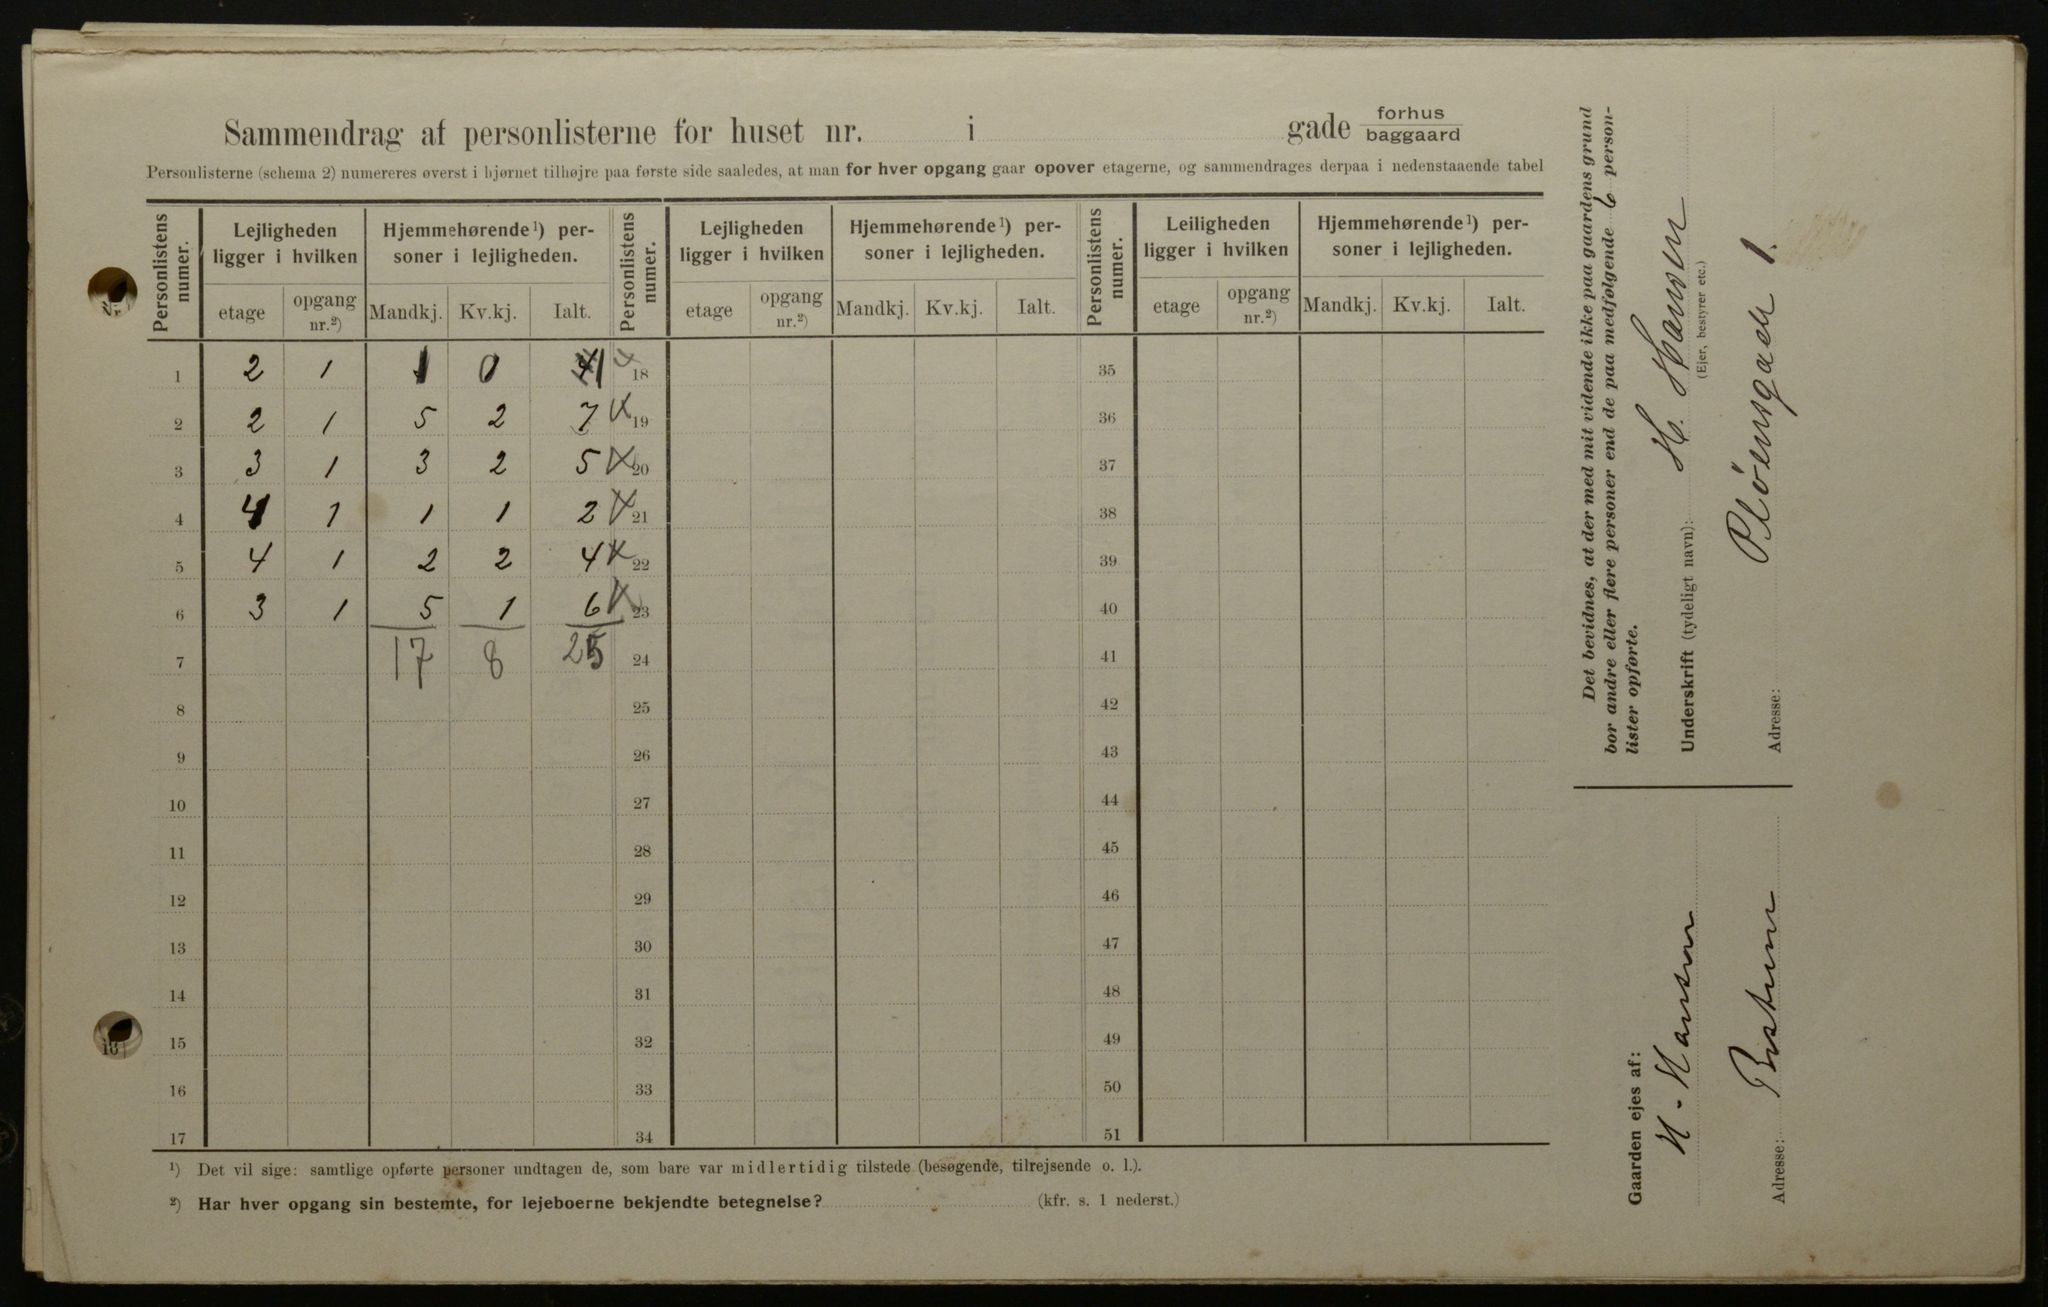 Sammendrag af personlisterne for huset nr. i gade forhus baggaard
Personlisterne (schema 2) numereres øverst i hjørnet tilhøjre paa første side saaledes, at man for hver opgang gaar opover etagerne, og sammendrages derpaa i nedenstaaende tabel
Personlistens numer. Lejligheden ligger i hvilken Hjemmehørende ¹) personer i lejligheden. Personlistens numer. Lejligheden ligger i hvilken Hjemmehørende ¹) personer i lejligheden. Personlistens numer. Leiligheden ligger i hvilken Hjemmehørende ¹) personer i lejligheden.
etage opgang nr.²) Mandkj. Kv.kj. Ialt. etage opgang nr.²) Mandkj. Kv.kj. Ialt. etage opgang nr.²) Mandkj. Kv.kj. Ialt.
1 2 1 1 0 1 18 35
2 2 1 5 2 7 19 36
3 3 1 3 2 5 20 37
4 4 1 1 1 2 21 38
5 4 1 2 2 4 22 39
6 3 1 5 1 6 23 40
7 17 8 25 24 41
8 25 42
9 26 43
10 27 44
11 28 45
12 29 46
13 30 47
14 31 48
15 32 49
16 33 50
17 34 51
¹) Det vil sige: samtlige opførte personer undtagen de, som bare var midlertidig tilstede (besøgende, tilrejsende o. l.).
²) Har hver opgang sin bestemte, for lejeboerne bekjendte betegnelse? (kfr. s. 1 nederst.)
Det bevidnes, at der med mit vidende ikke paa gaardens grund
bor andre eller flere personer end de paa medfølgende 6 person-
lister opførte.
Underskrift (tydeligt navn): H. Hansen
(Ejer, bestyrer etc.)
Adresse: Pløensgade 1.
Gaarden ejes af:
H. Hansen
Adresse: